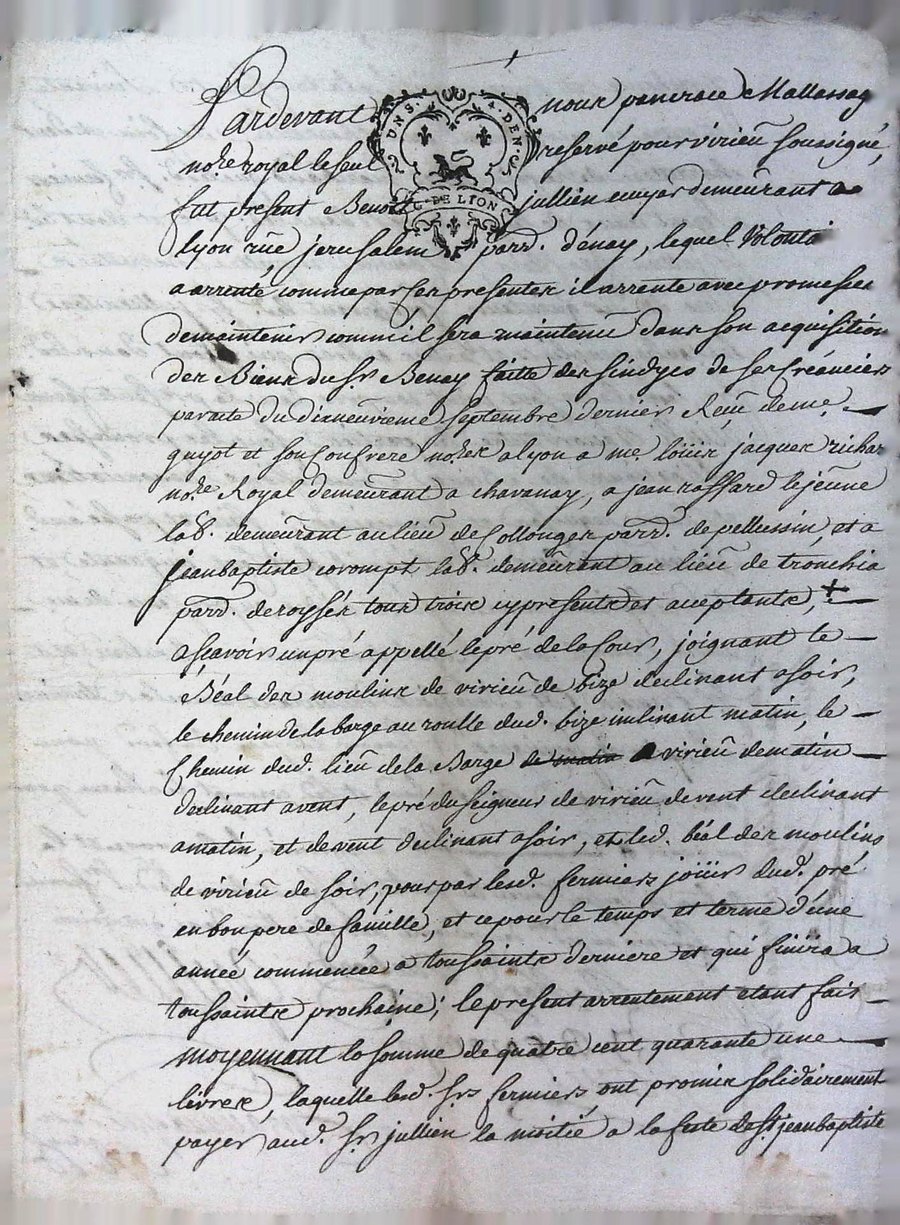 Pardevant nous pancrace Mallassag
UN S. 4. DEN.
G. DE LION
no.re royal le seul reservé pour virieu soussigné,
fut present Benoit jullien ecuyer demeurant a
lyon rüe jerusalem parr. d'énay, lequel volontai
a arrenté comme par ces presentes il arrente avec promesses
de maintenir comm'il sera maintenu dans son acquisition
des Biens du Sr. Benay faitte des sindycs de ses Créanciers
par acte du dixneuvieme septembre dernier Reçu de me.
guyot et son Confrere no.res a lyon a me. loüis jacques richar
no.re Royal demeurant a chavanay, a jean raffard le jeune
lab.r demeurant au lieu de Collonges parr. de pellussin, et a
jeanbaptiste corompt lab.r demeurant au lieu de tronchia
parr. de royséy tous trois cy presents et aceptants, +
a sçavoir un pré appellé le pré de la Cour, joignant le
Béal des moulins de virieu de bize declinant a soir,
le chemin de la barge au roulle dud. bize inclinant matin, le
Chemin dud. lieu de la Barge a virieu de matin
declinant a vent, le pré du seigneur de virieu de vent declinant
a matin, et de vent declinant a soir, et led. béal des moulins
de virieu de soir, pour par lesd. fermiers joüir dud. pré
en bon pere de famille, et ce pour le temps et terme d'une
année commencée a toussaints derniere et qui finira a
toussaints prochaine; le present arrentement etant fais
moyennant la somme de quatre cent quarante une
livres, laquelle lesd. srs fermiers ont promis solidairement
payer aud. sr jullien la moitié a la feste de st jeanbaptiste